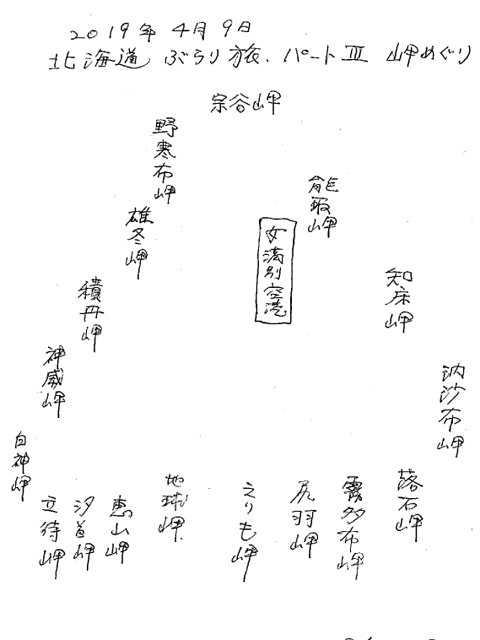 2019年4月9日
北海道 ぶらり旅、パートⅢ 岬めぐり
宗谷岬
野寒布岬
能取岬
雄冬岬
女満別空港
知床岬
積丹岬
神威岬
納沙布岬
白神岬
立待岬
汐首岬
恵山岬
地球岬
えりも岬
尻羽岬
霧多布岬
落石岬